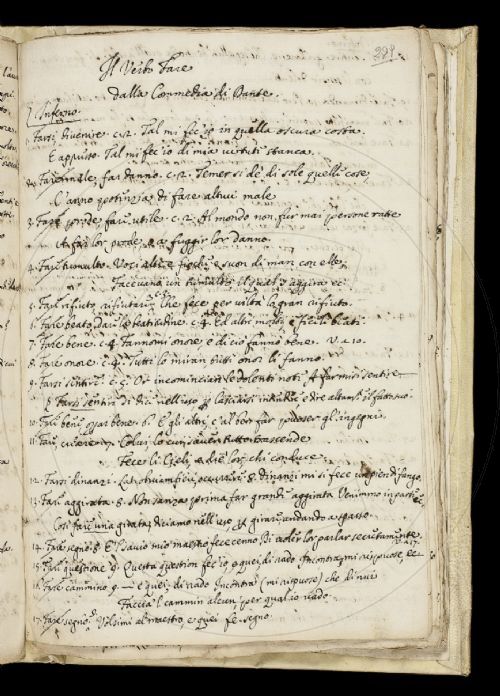 299.
Il Verbo Fare
dalla Commedia di Dante.
Inferno
1. Farsi, divenire. c. 2. Tal mi fec'io in quella oscura costa.
E appresso. Tal mi fec'io di mia virtuti stanca.
2. Far male, far danno. c. 2. Temer si dè di sole quelle cose,
C'anno potenza di fare altrui male
3. Fare prode, fare utile c. 2. Al mondo non fur mai persone ratte
A far lor prode, e a fuggir lor danno.
4. Fare tumulto. Voci alte e fioche, e suon di man con elle,
Facevano un tumulto il qual s'aggira ec:
5. Fare rifiuto, rifiutare. Che fece per viltà la gran rifiuto.
6. Fare beato, dare beatitudine. c. 4. Ed altri molti, e feceli beati.
7. Fare bene. c. 4. Fannomi onore, e di ciò fanno bene. V. 10.
8. Fare onore. c. 4. Tutti lo miran, tutti onor li fanno.
9. Farsi sentire. c. 5. Or incomincian le dolenti note A farmisi sentire
Farsi sentire di dice nell'uso
10. Far bene, oprar bene. 6. E gli altri, c'al ben far poser gl'ingegni.
11. Fare, creare 7. Colui lo cui saver tutto trascende
Fece li Cieli, e diè lor chi conduce.
12. Farsi dinanzi. 8. Dinanzi mi si fece un pien di fango
13. Fare aggirata. 8. Non sanza prima far grande aggirata Venimmo in parte ec.
Così fare una girata, diciamo nell'uso, girare andando a spasso.
14. Fare segno. 8. E il savio mio maestro fece cenno Di voler lor parlar secretamente.
15. Fare questione 9. Questa question fec'io, e quei, di rado Incontra, mi rispuose, ec.
16. Fare cammino. 9. e quei, di rado Incontra (mi rispuose) che di nui
Faccia 'l cammin alcun, per qual io vado.
17. Fare segno. Volsimi al maestro, e quei fe segno